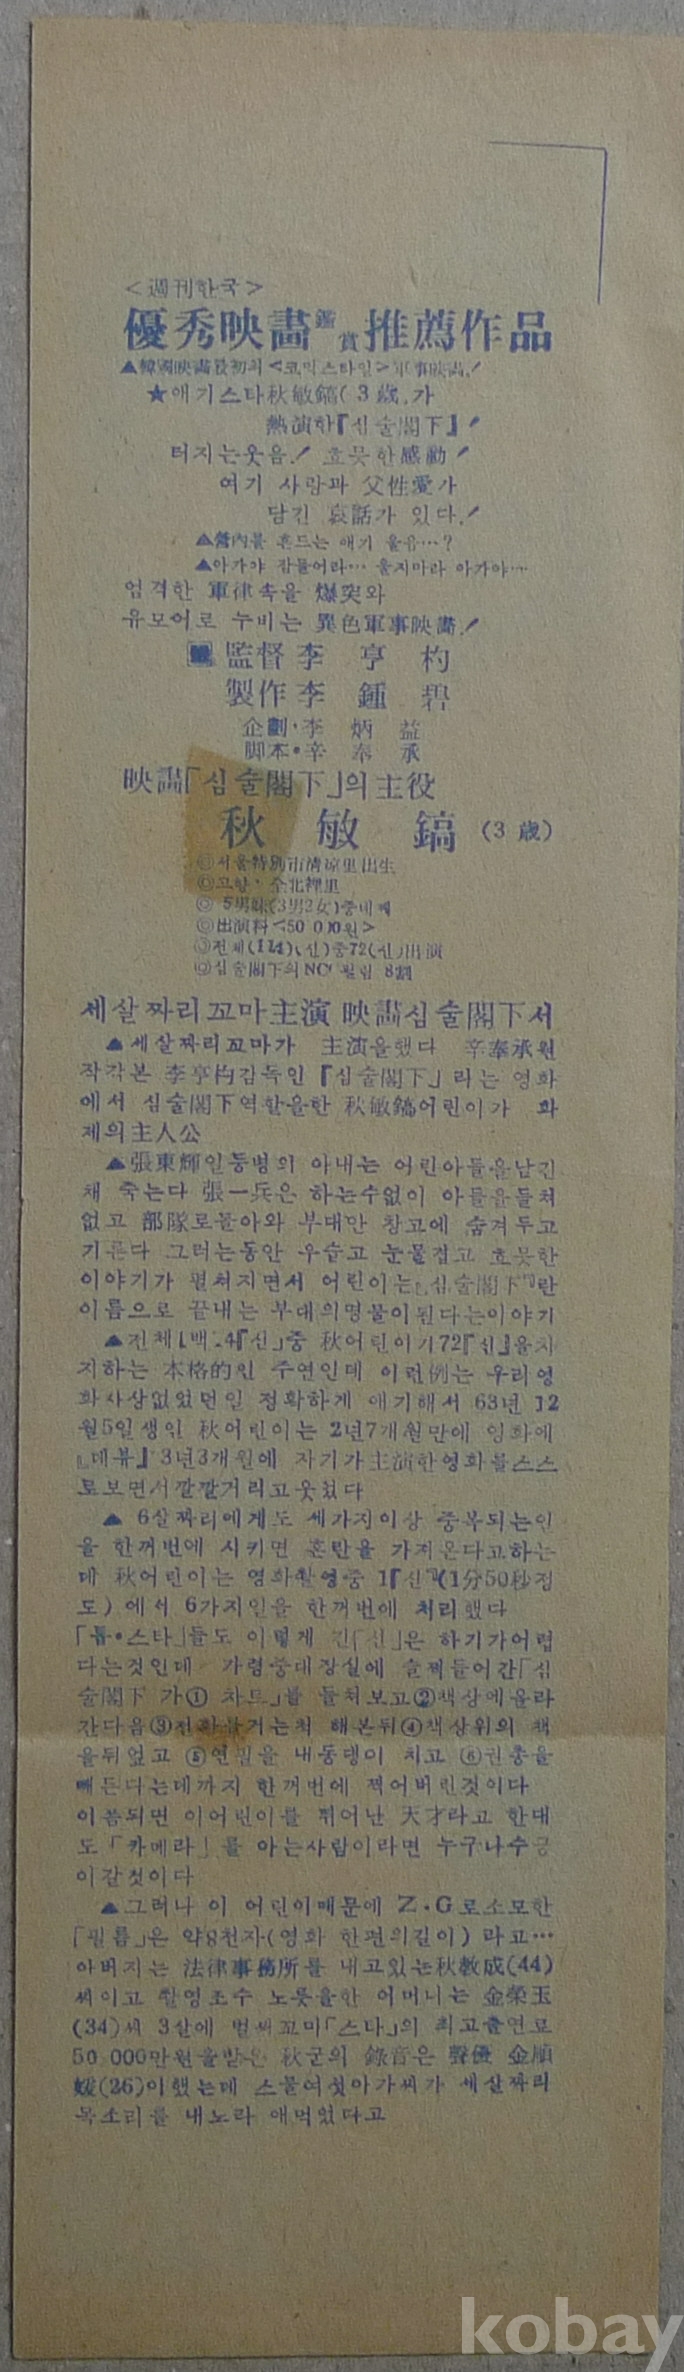 <週刊한국>
優秀映畵鑑賞推薦作品
▲韓國映畵最初의 <코믹스타일>軍事映畵!
★애기스타秋敏鎬(3歲)가
熱演한『심술閣下』!
터지는웃음! 흐뭇한感動!
여기 사랑과 父性愛가
담긴 哀話가 있다!
▲營內를 흔드는 애기 울음…?
▲아가야 잠들어라… 울지마라 아가야…
엄격한 軍律속을 爆突와
유모어로 누비는 異色軍事映畵!
監督 李 亨 杓
製作 李 鍾 碧
企劃·李 炳 益
脚本·辛 奉 承
映畵「심술閣下」의主役
秋 敏 鎬 (3 歲)
◎서울特別市淸凉里出生
◎고향·全北裡里
◎ 5男妹(3男2女)중네째
◎出演料<50 000원>
◎전체(114)(신)중72(신)出演
◎심술閣下의NG 필림 8割
세살짜리꼬마主演 映畵심술閣下서
▲세살짜리꼬마가 主演을했다 辛奉承원
작각본 李亨杓감독인『심술閣下』라는 영화
에서 심술閣下역할을한 秋敏鎬어린이가 화
제의主人公
▲張東輝일등병의 아내는 어린아들을남긴
채 죽는다 張一兵은 하는수없이 아들을들쳐
없고 部隊로돌아와 부대안 창고에 숨겨두고
기른다 그러는동안 우습고 눈물겹고 흐뭇한
이야기가 펼쳐지면서 어린이는『심술閣下』란
이름으로 끝내는 부대의명물이된다는이야기
▲전체1백14『신』중 秋어린이가72『신』을차
지하는 本格的인 주연인데 이런例는 우리영
화사상없었던일 정확하게 얘기해서 63년 12
월5일생인 秋어린이는 2년7개월만에 영화에
『데뷰』3년3개월에 자기가主演한영화를스스
로보면서깔깔거리고웃었다
▲ 6살짜리에게도 세가지이상 중복되는일
을 한꺼번에 시키면 혼란을 가져온다고하는
데 秋어린이는 영화촬영중 1『신』(1分50秒정
도)에서 6가지일을 한꺼번에 처리했다
「톱·스타」들도 이렇게 긴「신」은 하기가어렵
다는것인데 가령중대장실에 슬쩍들어간「심
술閣下 가① 차트」를 들쳐보고②책상에올라
간다음③전화를거는척 해본뒤④책상위의 책
을뒤엎고 ⑤연필을 내동댕이 치고 ⑥권총을
빼든다는데까지 한꺼번에 찍어버린것이다
이쯤되면 이어린이를 뛰어난 天才라고 한대
도「카메라」를 아는사람이라면 누구나수긍
이갈것이다
▲그러나 이 어린이때문에 Z·G로소모한
「필름」은 약8천자(영화 한편의길이) 라고…
아버지는 法律事務所를 내고있는秋敎成(44)
씨이고 촬영조수 노릇을한 어머니는 金榮玉
(34)씨 3살에 벌써꼬마「스타」의 최고출연료
50,000만원을받은 秋군의 錄音은 聲優 金順
媛(26)이했는데 스물여섯아가씨가 세살짜리
목소리를 내노라 애먹었다고
kobay